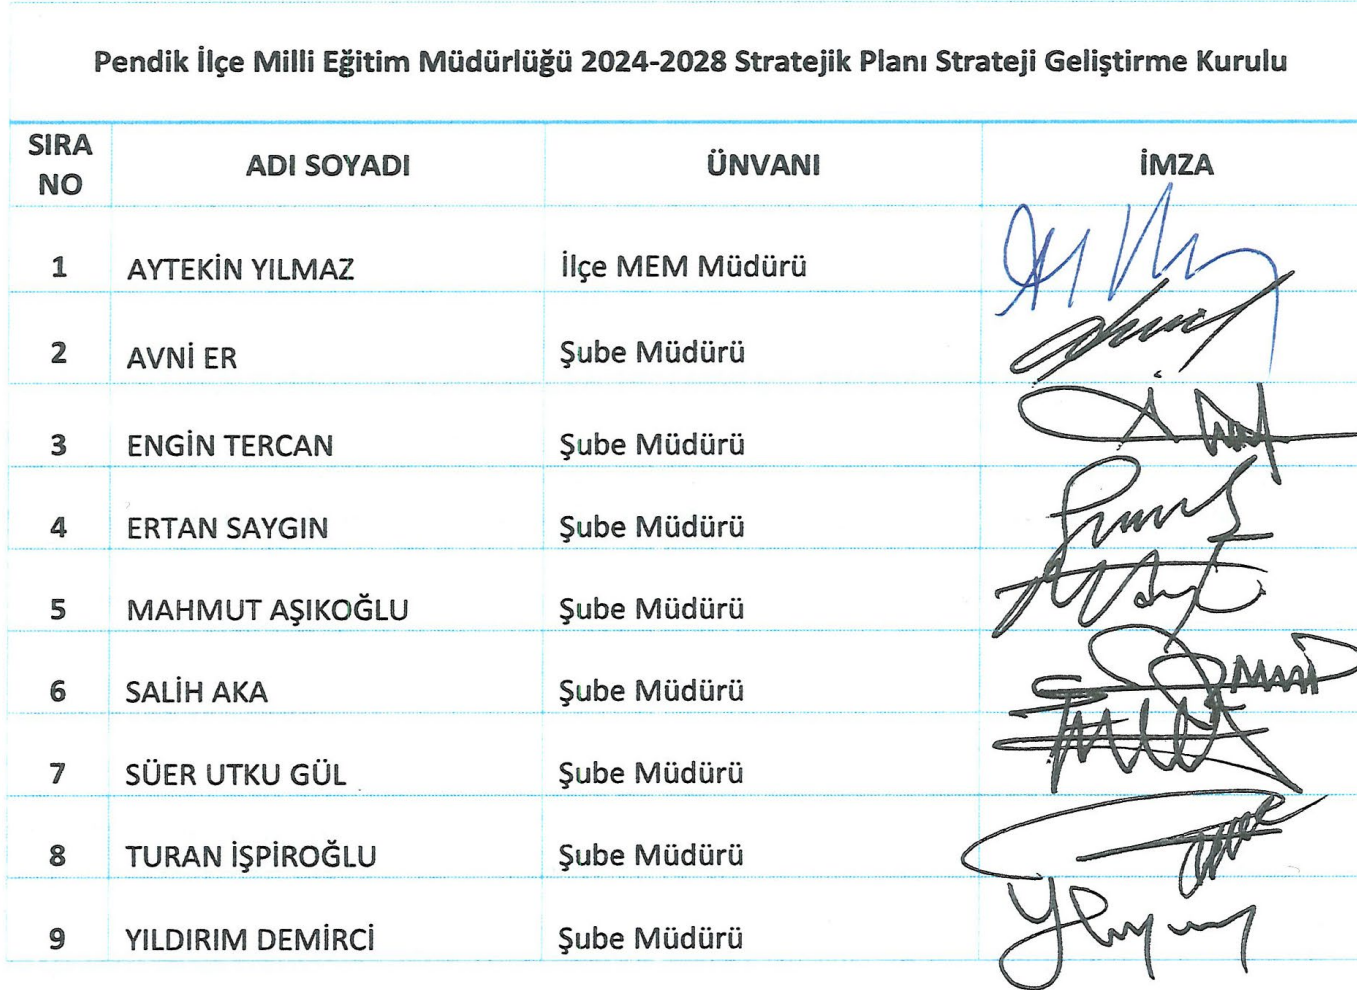 Pendik İlçe Milli Eğitim Müdürlüğü 2024-2028 Stratejik Planı Strateji Geliştirme Kurulu
SIRA NO ADI SOYADI ÜNVANI İMZA
1 AYTEKİN YILMAZ İlçe MEM Müdürü
2 AVNİ ER Şube Müdürü
3 ENGİN TERCAN Şube Müdürü
4 ERTAN SAYGIN Şube Müdürü
5 MAHMUT AŞIKOĞLU Şube Müdürü
6 SALİH AKA Şube Müdürü
7 SÜER UTKU GÜL Şube Müdürü
8 TURAN İŞPİROĞLU Şube Müdürü
9 YILDIRIM DEMİRCİ Şube Müdürü